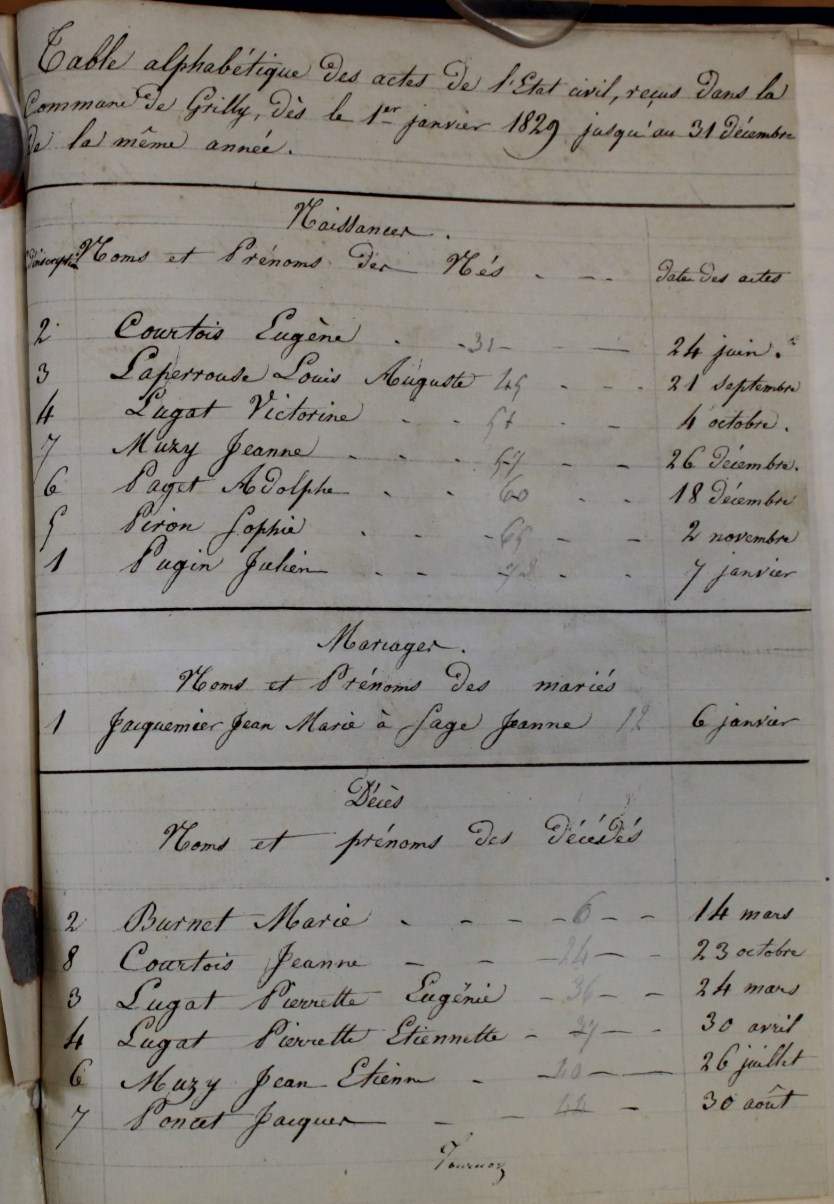 Table alphabétique des actes de l'Etat civil, reçus dans la
Commune de Grilly, dès le 1er janvier 1829 jusqu'au 31 décembre
de la même année.
Naissances.
Noms et Prénoms des Nés - - - date des actes
2 Courtois Eugène . - 31 - - - 24 juin.
3 Laperrouse Louis Auguste 45 - - - 21 septembre
4 Lugat Victorine - - - - 4 octobre.
7 Muzy Jeanne - - - 57 - - 26 décembre.
6 Paget Adolphe - - 60 - - 18 décembre
5 Piron Sophie - - - 65 - - 2 novembre
1 Pugin Julien - - - - 7 janvier
Mariages.
Noms et Prénoms des mariés
1 Jacquemier Jean Marie à Sage Jeanne 12 6 janvier
Décès
Noms et prénoms des décédés
2 Burnet Marie - - - - 6 - - 14 mars
8 Courtois Jeanne - - - 24 - - 23 octobre
3 Lugat Pierrette Eugénie - 36 - - 24 mars
4 Lugat Pierrette Etiennette - 37 - - 30 avril
6 Muzy Jean Etienne - - - 26 juillet
7 Poncet Jacques - - - 30 août